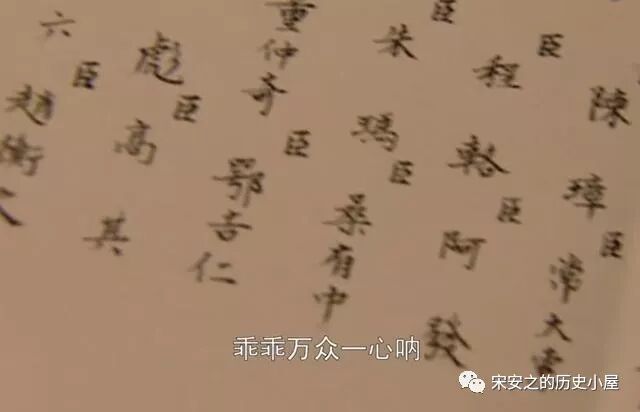 陳璋臣常大
臣程輅臣阿發
臣朱瑪臣桑有中
仲奇臣鄂吉仁
彪臣高其
六臣趙衛
乖乖万众一心呐
宋安之的历史小屋